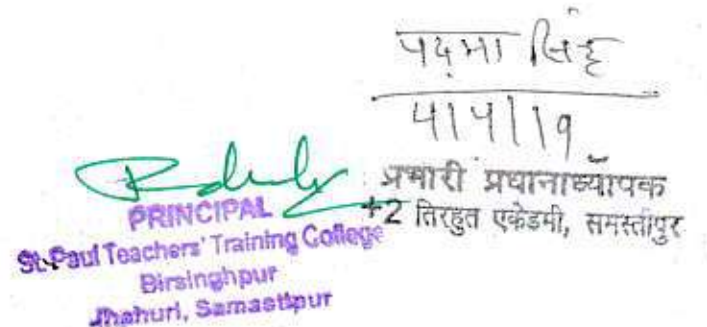 पद्मा सिंह
4/4/19
प्रभारी प्रधानाध्यापक
+2 तिरहुत एकेडमी, समस्तीपुर
PRINCIPAL
St. Paul Teachers' Training College
Birsinghpur
Jhahuri, Samastipur